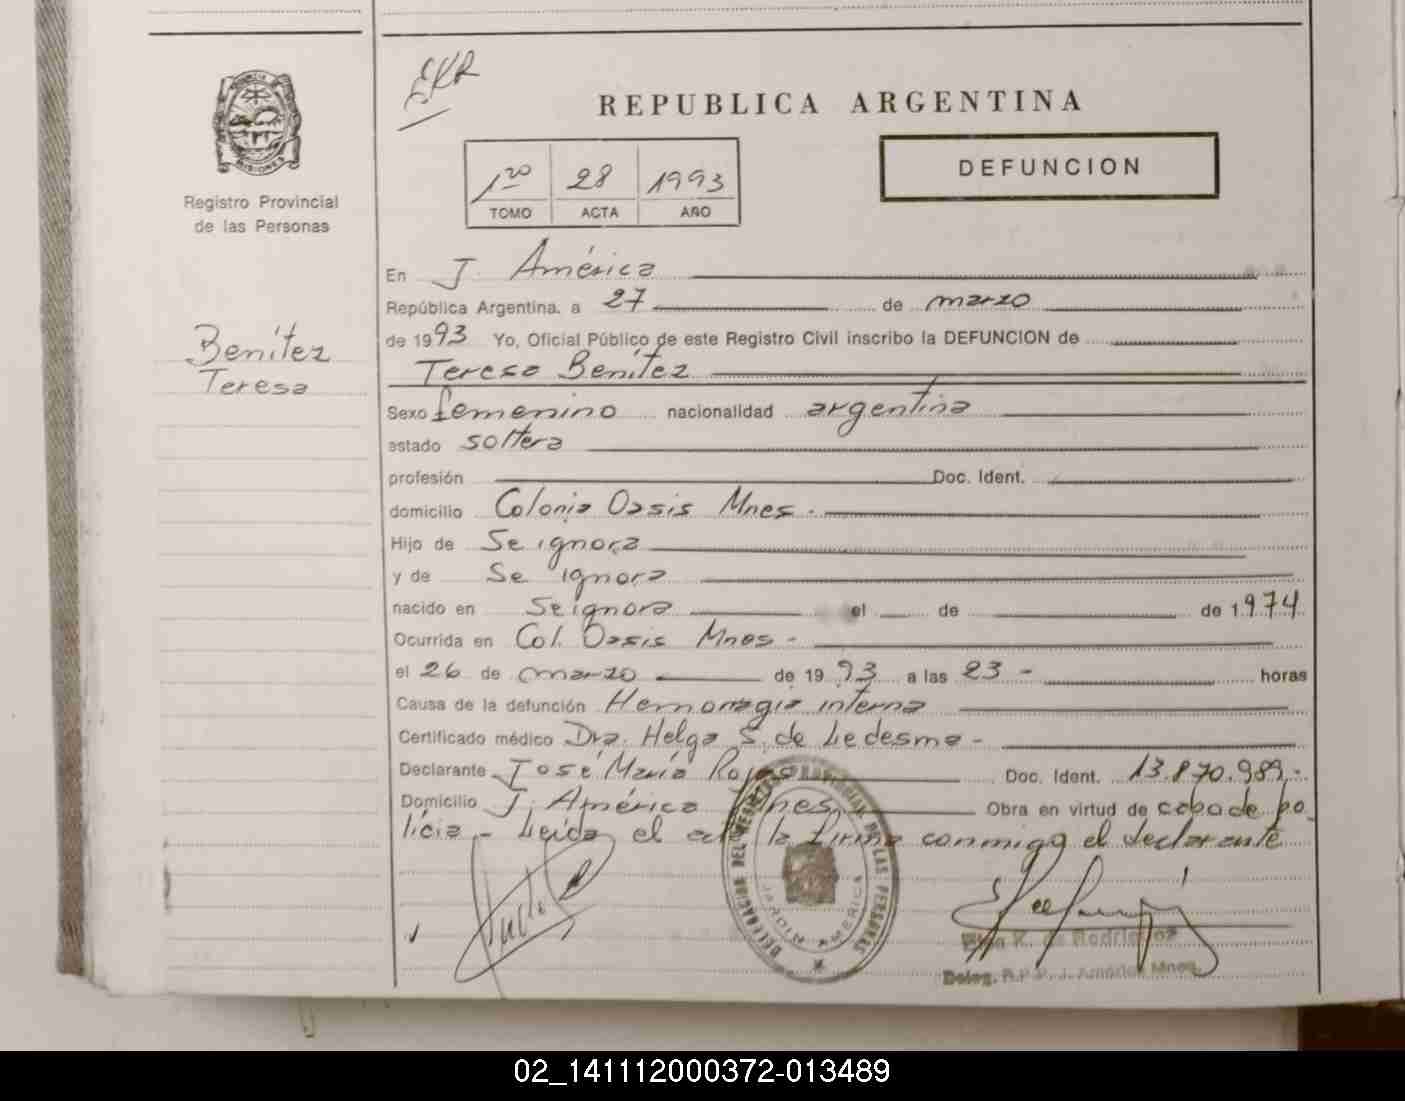 EKR
REPUBLICA ARGENTINA
1ro 28 1993
TOMO ACTA AÑO
DEFUNCION
MISIONES
Registro Provincial
de las Personas
Benítez
Teresa
En J. América
República Argentina, a 27 de marzo
de 1993 Yo, Oficial Público de este Registro Civil inscribo la DEFUNCION de
Teresa Benítez
Sexo femenino nacionalidad argentina
estado soltera
profesión Doc. Ident.
domicilio Colonia Oasis Mnes.
Hijo de Se ignora
y de Se ignora
nacido en Se ignora el de de 1.974
Ocurrida en Col. Oasis Mnes -
el 26 de marzo de 19 93 a las 23 - horas
Causa de la defunción Hemorragia interna
Certificado médico Dra. Helga S. de Ledesma -
Declarante José María Rojas Doc. Ident. 13.870.989.-
Domicilio J. América Mnes. Obra en virtud de copa de po
licia - Leída el acta la firma conmigo el declarante
DELEGACION DEL REGISTRO PROVINCIAL DE LAS PERSONAS
JARDIN AMERICA
K. de Rodriguez
Deleg. R.P.P. J. América Mnes.
02_141112000372-013489